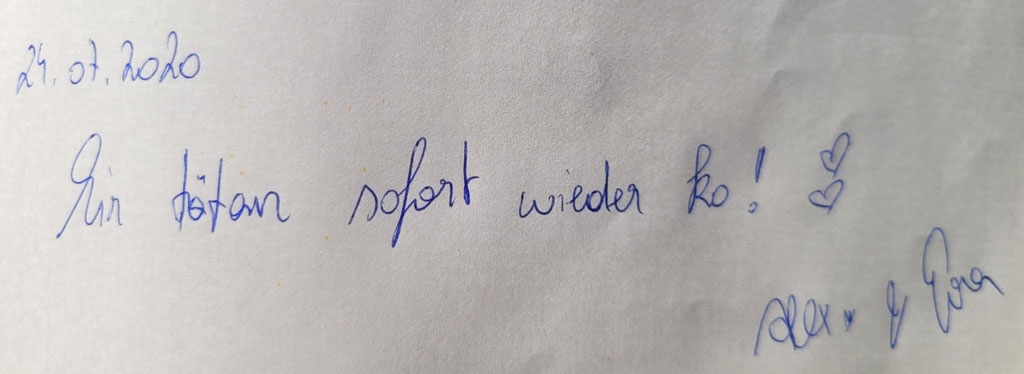 24.07.2020
Mir tätan sofort wieder ko! ♡♡
Alex & Eva